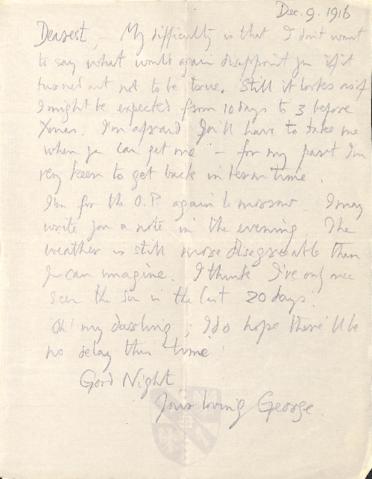 Dec. 9. 1916
Dearest, – My difficulty is that I don't want
to say what would again disappoint you if it
turned out not to be true. Still it looks as if
I might be expected from 10 days to 3 before
Xmas. I'm afraid you'll have to take me
when you can get me – for my part I'm
very keen to get back in term time.
I'm for the O.P. again to morrow. I may
write you a note in the evening. The
weather is still more disagreeable than
you can imagine. I think I've only once
seen the sun in the last 20 days.
Oh! my darling, I do hope there'll be
no delay this time.
Good Night
Your loving George.